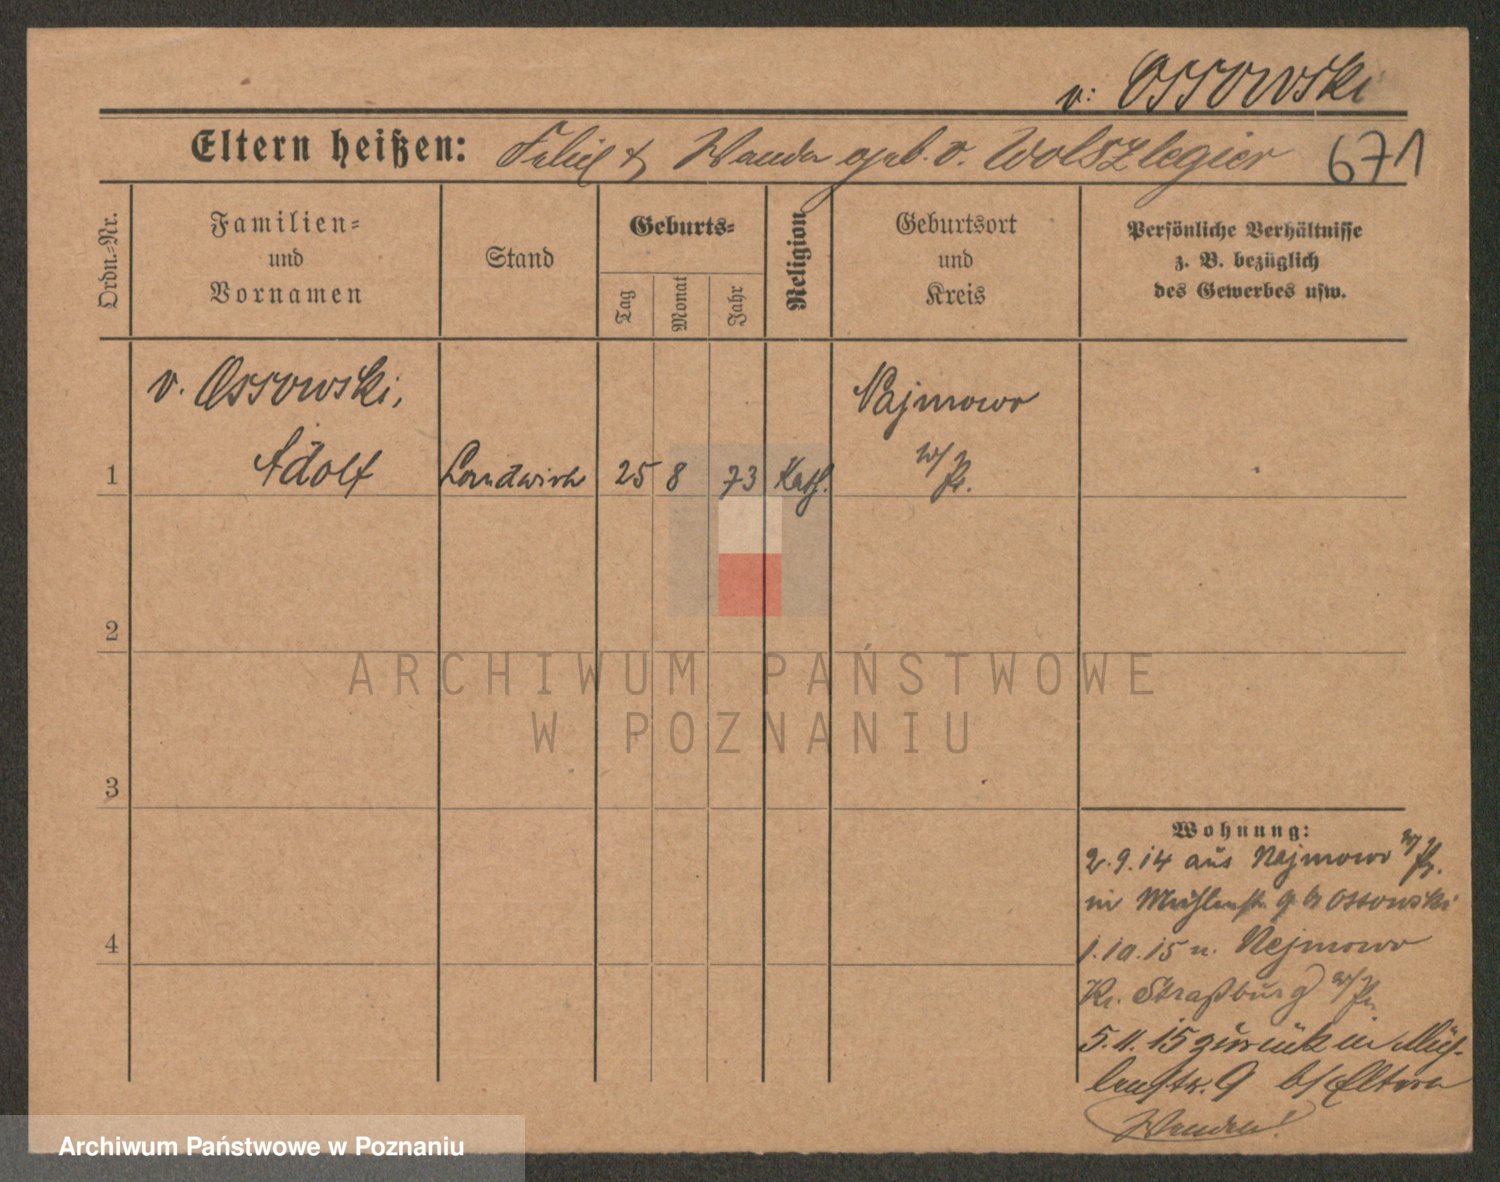 v. Ossowski
Eltern heißen: Felix & Wanda geb. v. Wolszlegier 671
Ordn.-Nr.
Familien=
und
Vornamen
Stand
Geburts=
Tag
Monat
Jahr
Religion
Geburtsort
und
Kreis
Persönliche Verhältnisse
z. B. bezüglich
des Gewerbes usw.
v. Ossowski,
Adolf
1
Landwirth
25 8 73
Kath.
Najmowo
W/Pr.
2
3
4
Wohnung:
2.9.14 aus Najmowo W/Pr.
in Mühlenstr 9 b Ossowski
1.10.15 n. Nejmowo
Kr. Straßburg W/Pr.
5.11.15 zurück in Müh-
lenstr. 9 b/ Eltern
ARCHIWUM PAŃSTWOWE
W POZNANIU
Archiwum Państwowe w Poznaniu